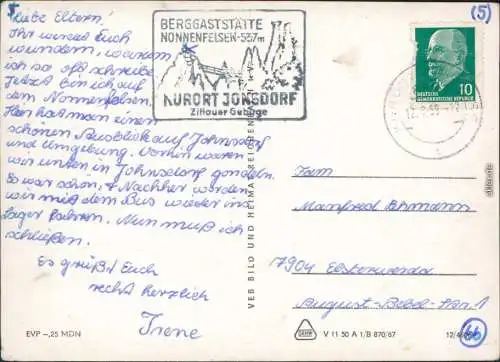 (5)
Liebe Eltern!
Ihr werdet Euch
wundern, warum
ich so oft schreibe.
Jetzt bin ich auf
dem Nonnenfelsen.
Hier hat man einen
schönen Ausblick auf Johnsdorf
und Umgebung. Vorhin waren
wir unten in Johnsdorf gondeln.
Es war schön, Nachher werden
wir mit dem Bus wieder ins
Lager fahren. Nun muß ich
schließen.
Es grüßt Euch
recht herzlich
Irene
BERGGASTSTÄTTE
NONNENFELSEN-537m
KURORT JONSDORF
Zittauer Gebirge
10
DEUTSCHE
DEMOKRATISCHE REPUBLIK
VEB BILD UND HEIMAT REICHENBACH
Fam
Manfred Ehmann
7904 Elsterwerda
August-Bebel-Str. 1
EVP -,25 MDN
V 11 50 A 1/B 870/67
66